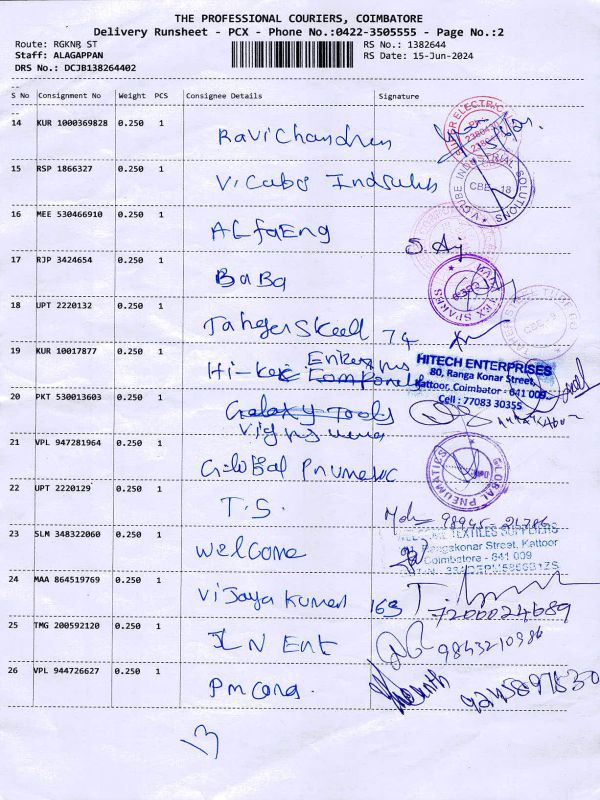 THE PROFESSIONAL COURIERS, COIMBATORE
Delivery Runsheet - PCX - Phone No.:0422-3505555 - Page No.:2
Route: RGKNR ST
RS No.: 1382644
Staff: ALAGAPPAN
RS Date: 15-Jun-2024
DRS No.: DCJB138264402
S No Consignment No Weight PCS Consignee Details Signature
14 KUR 1000369828 0.250 1
Ravi Chandren
15 RSP 1866327 0.250 1
V CUBE INDUSTRIAL SOLUTIONS
CBE - 18
16 MEE 530466910 0.250 1
ALfaEng
17 RJP 3424654 0.250 1
BaBa
TEX SPARES
18 UPT 2220132 0.250 1
74
19 KUR 10017877 0.250 1
HITECH ENTERPRISES
80, Ranga Konar Street,
Kattoor, Coimbator - 641 009.
Cell : 77083 30355
20 PKT 530013603 0.250 1
Galaxy Tools
21 VPL 947281964 0.250 1
Global
GLOBAL PNEUMATICS
22 UPT 2220129 0.250 1
T.S.
23 SLM 348322060 0.250 1
welcome
WELCOME TEXTILES SUPPLIERS
Rangakonar Street, Kattoor
Coimbatore - 641 009
24 MAA 864519769 0.250 1
Vijaya Kumar 163
7200024689
25 TMG 200592120 0.250 1
JLN Ent
9843210986
26 VPL 944726627 0.250 1
9245897830